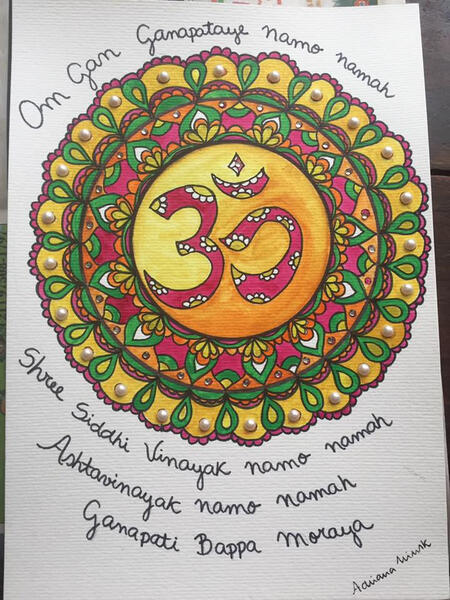 Om Gan Ganapataye namo namah
Shree Siddhi Vinayak namo namah
Ashtavinayak namo namah
Ganapati Bappa moraya
Adriana